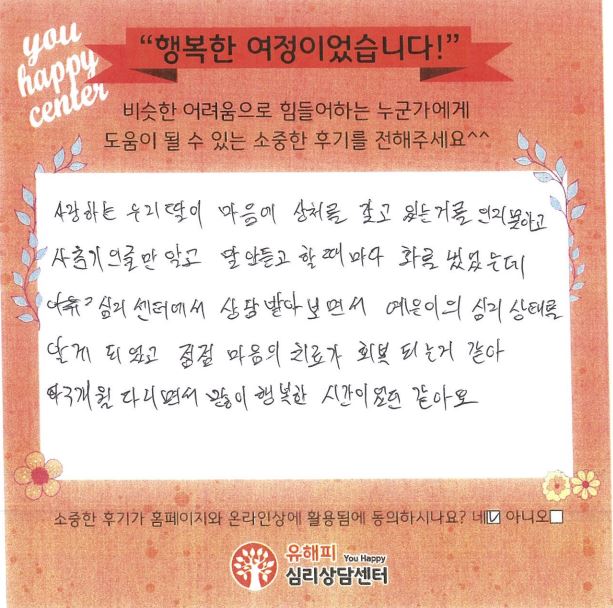 you
happy
center
“행복한 여정이었습니다!”
비슷한 어려움으로 힘들어하는 누군가에게
도움이 될 수 있는 소중한 후기를 전해주세요^^
사랑하는 우리 딸이 마음에 상처를 갖고 있는거를 못하고
사춘기 알고 말 안듣고 할때 마다 화를 냈었는데
심리 센터에서 상담 받아 보면서 예은이의 심리 상태를
알게 되었고 점점 마음의 치료가 회복 되는거 같아
약3개월 다니면서 많이 행복한 시간이 같아요
소중한 후기가 홈페이지와 온라인상에 활용됨에 동의하시나요? 네☑ 아니오☐
유해피 You Happy
심리상담센터